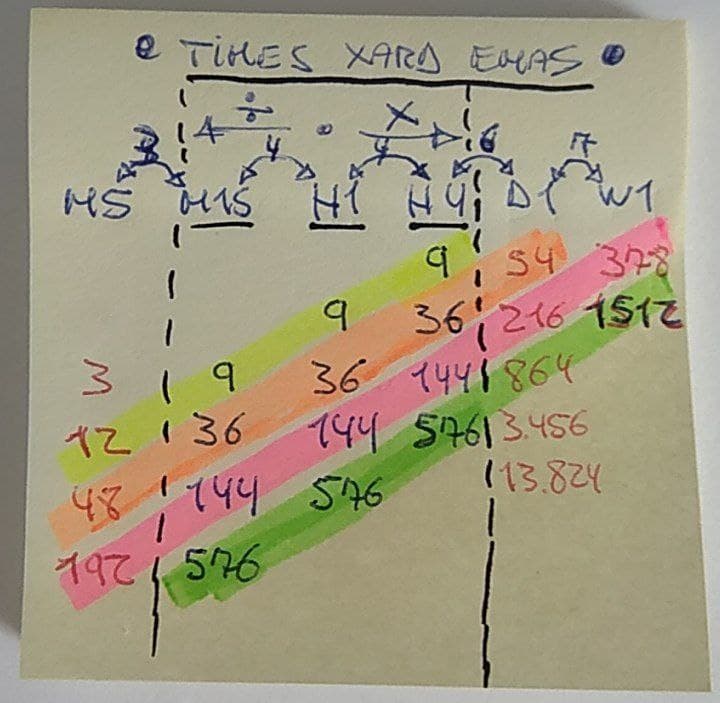 • TIMES XARD EMAS •
÷ • X
3 4 4 6 7
M5 M15 H1 H4 D1 W1
9 54 378
9 36 216 1512
3 9 36 144 864
12 36 144 576 3.456
48 144 576 13.824
192 576